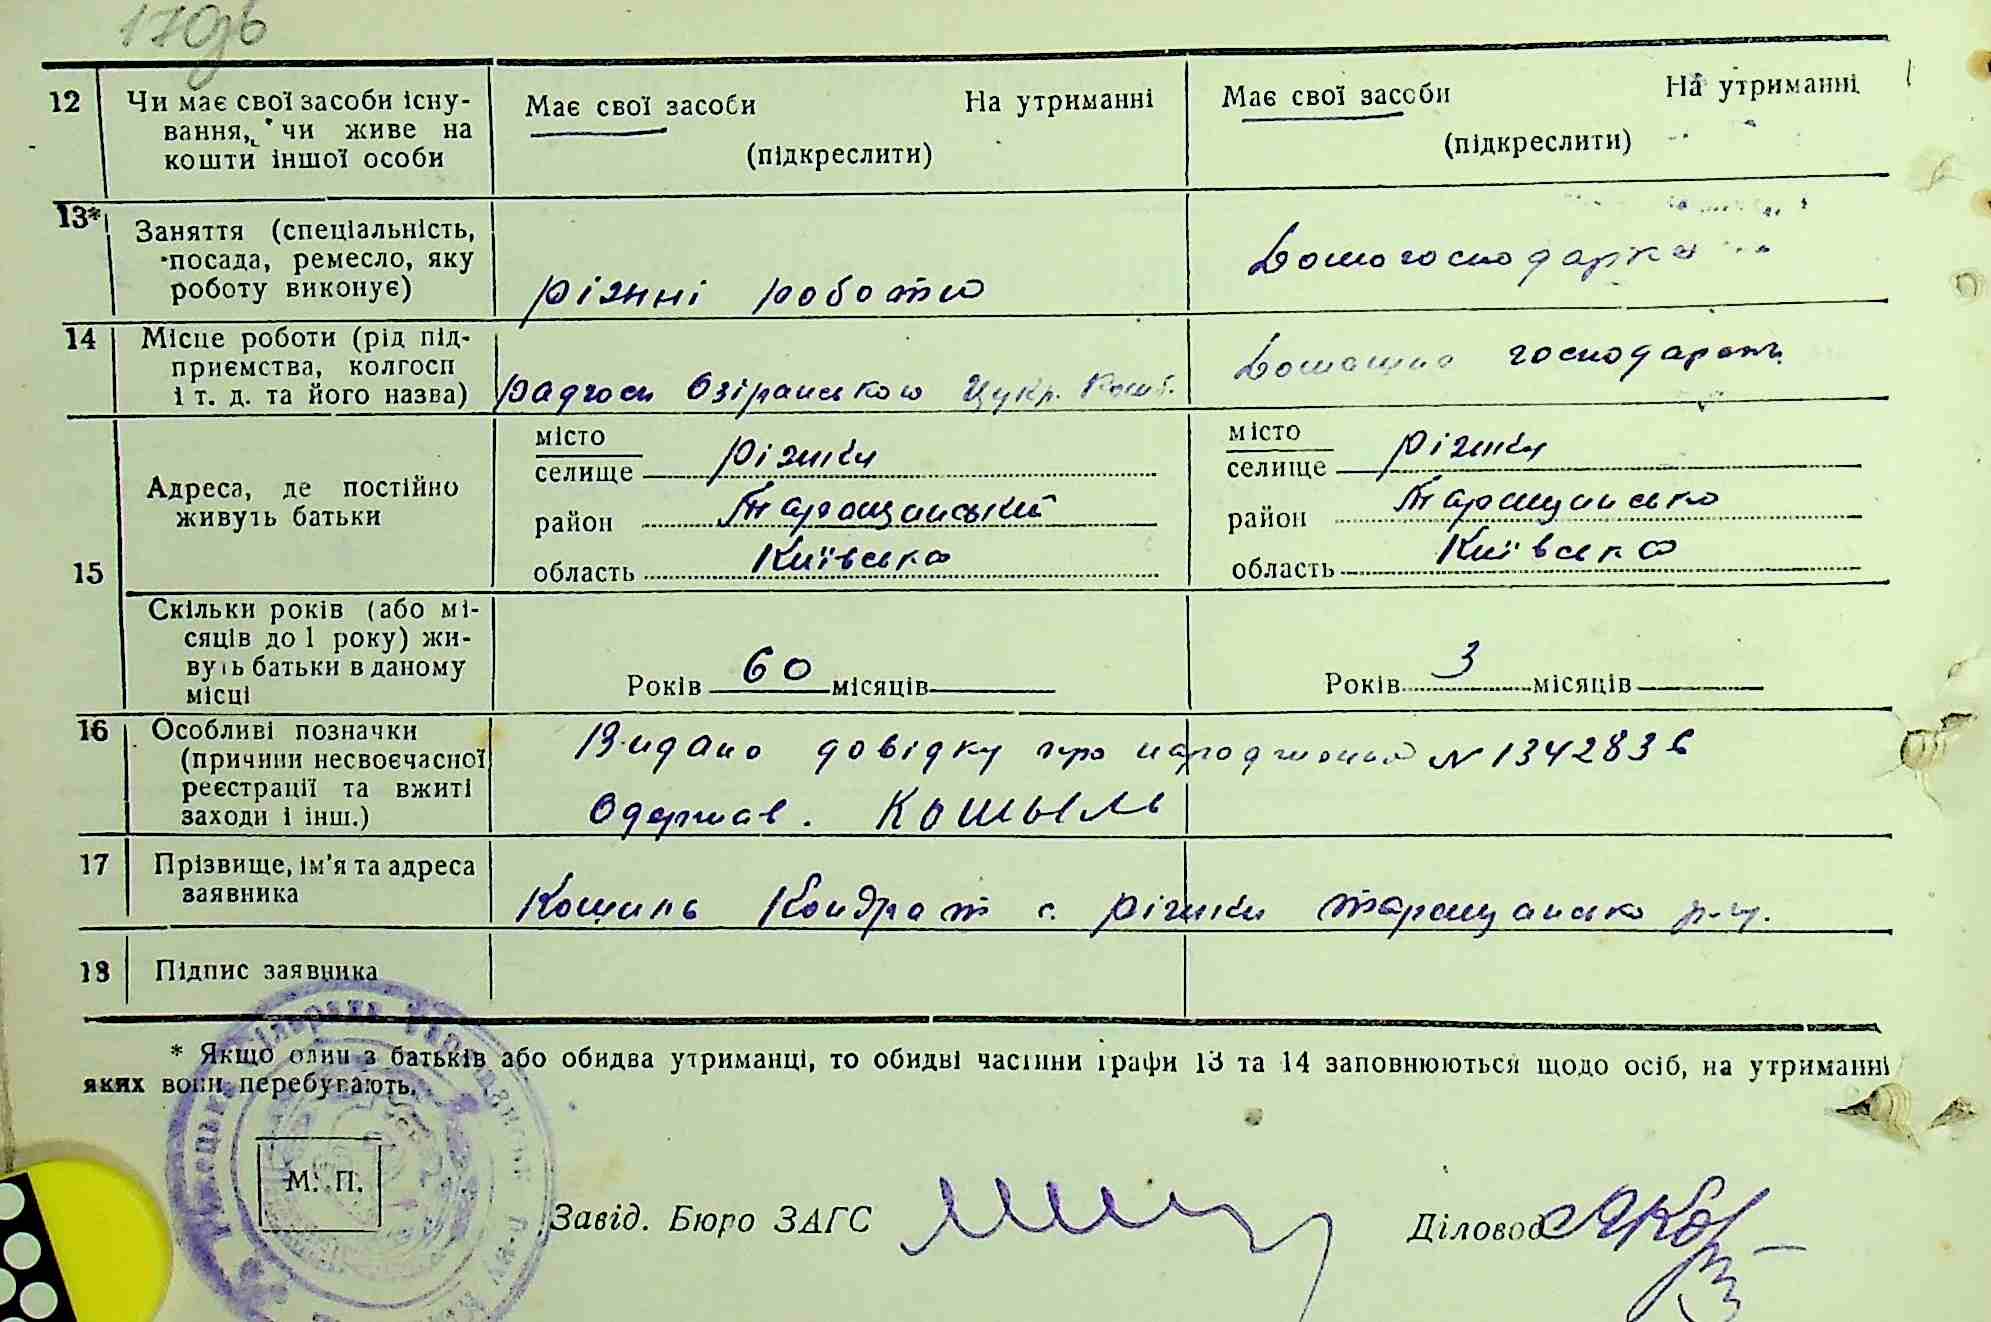 12 Чи має свої засоби існу-
вання, чи живе на
кошти іншої особи
Має свої засоби На утриманні
(підкреслити)
Має свої засоби На утриманні
(підкреслити)
13* Заняття (спеціальність,
посада, ремесло, яку
роботу виконує)
різнні роботи
Домогосподарка
14 Місце роботи (рід під-
приємства, колгосп
і т. д. та його назва)
радгосп Озірянського Цукр. Комб.
Домашнє господарст.
15 Адреса, де постійно
живуть батьки
місто
селище Ріжки
район Таращанський
область Київська
місто
селище Ріжки
район Таращансько
область Київська
Скільки років (або мі-
сяців до 1 року) жи-
вуть батьки в даному
місці
Років 60 місяців
Років 3 місяців
16 Особливі позначки
(причини несвоєчасної
реєстрації та вжиті
заходи і інш.)
Видано довідку про народження N 1342836
Одержав. Кошыль
17 Прізвище, ім'я та адреса
заявника
Кошиль Кондрат с. Ріжки Таращансько р-ну.
18 Підпис заявника
* Якщо один з батьків або обидва утриманці, то обидві частини графи 13 та 14 заповнюються щодо осіб, на утриманні
яких вони перебувають.
М. П.
Завід. Бюро ЗАГС
Діловод